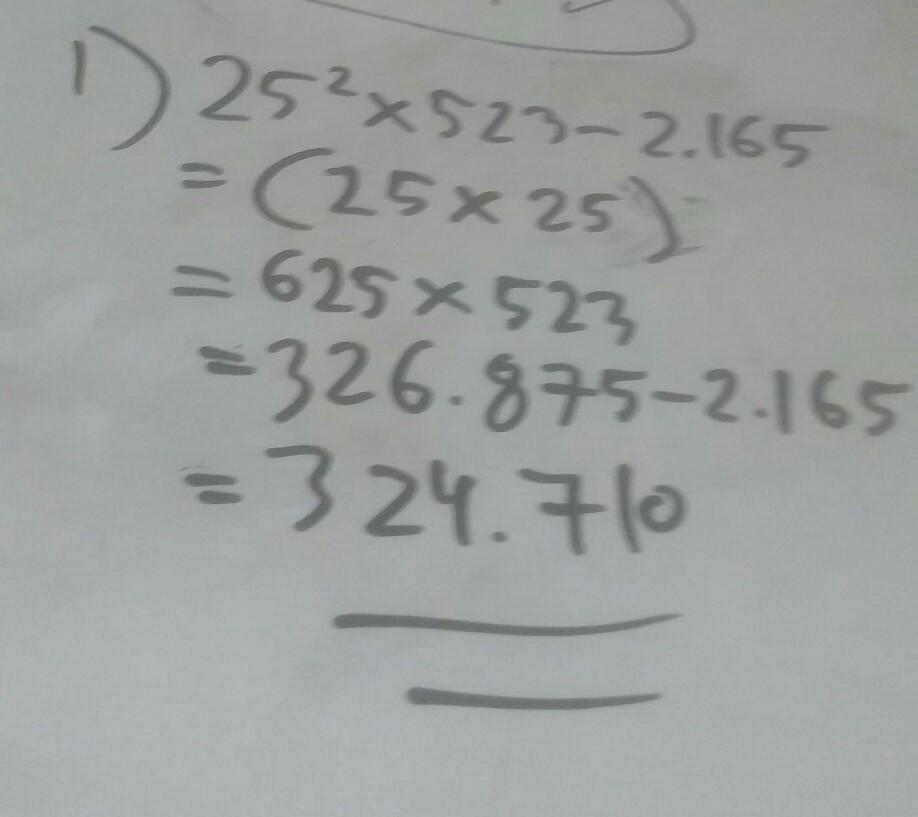 1) 25² × 523 - 2.165
= (25 × 25)
= 625 × 523
= 326.875 - 2.165
= 324.710